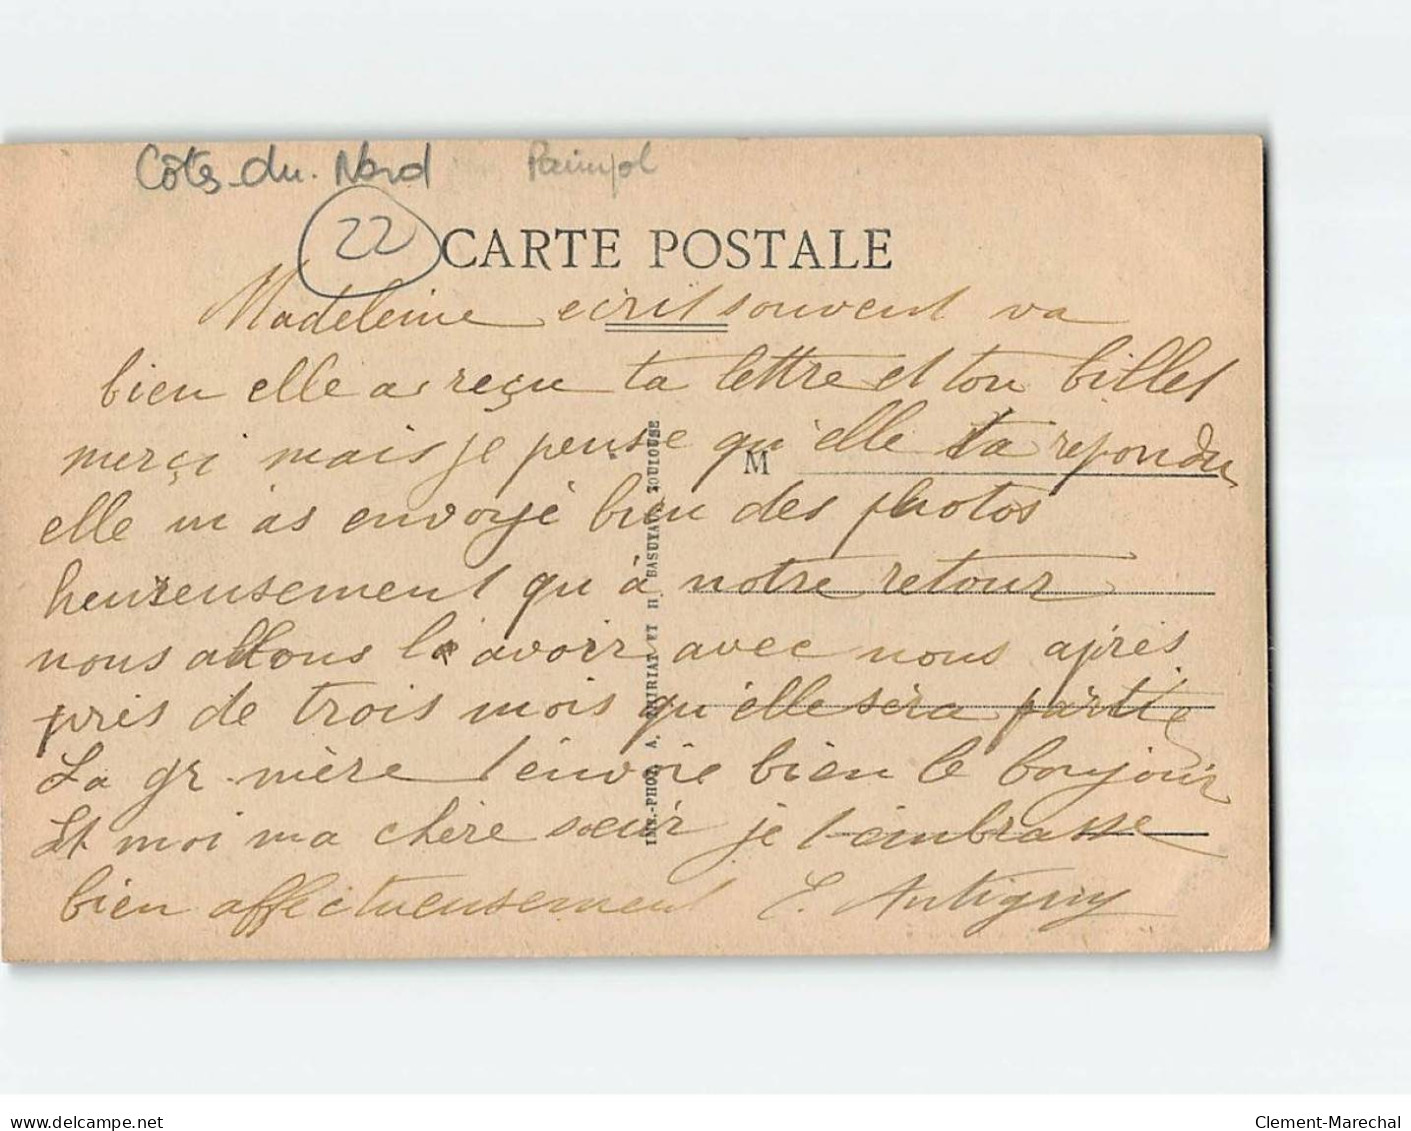 Côtes-du-Nord Paimpol
22
CARTE POSTALE
Madeleine ecrit souvent va
bien elle as reçu ta lettre et ton billet
merçi mais je pense qu'elle ta repondu
M
elle m'as envoyé bien des photos
heureusement qu'à notre retour
nous allons l'avoir avec nous après
près de trois mois qu'elle sèra partie
La gr-mère t'envoie bien le bonjour
Et moi ma chère sœur je t'embrasse
bien affectueusement E. Antigny
IMP.-PHOT. A. THIRIAT ET H. BASUYAU, TOULOUSE
www.delcampe.net
Clement-Marechal